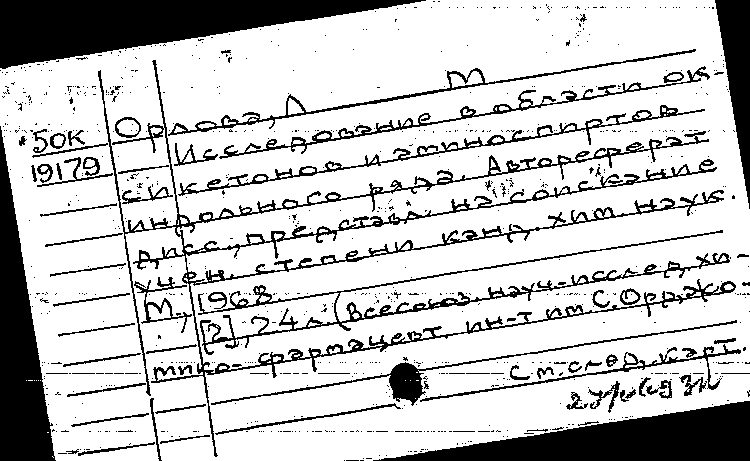 50К Орлова, Л М
19179 Исследование в области ок-
сикетонов и аминоспиртов
индольного ряда. Автореферат
дисс., представл. на соискание
учен. степени канд. хим. наук.
М., 1968.
[2], 24 л. (Всесоюз. науч.-исслед. хи-
мико-фармацевт. ин-т им. С. Орджо-
См. след. карт.